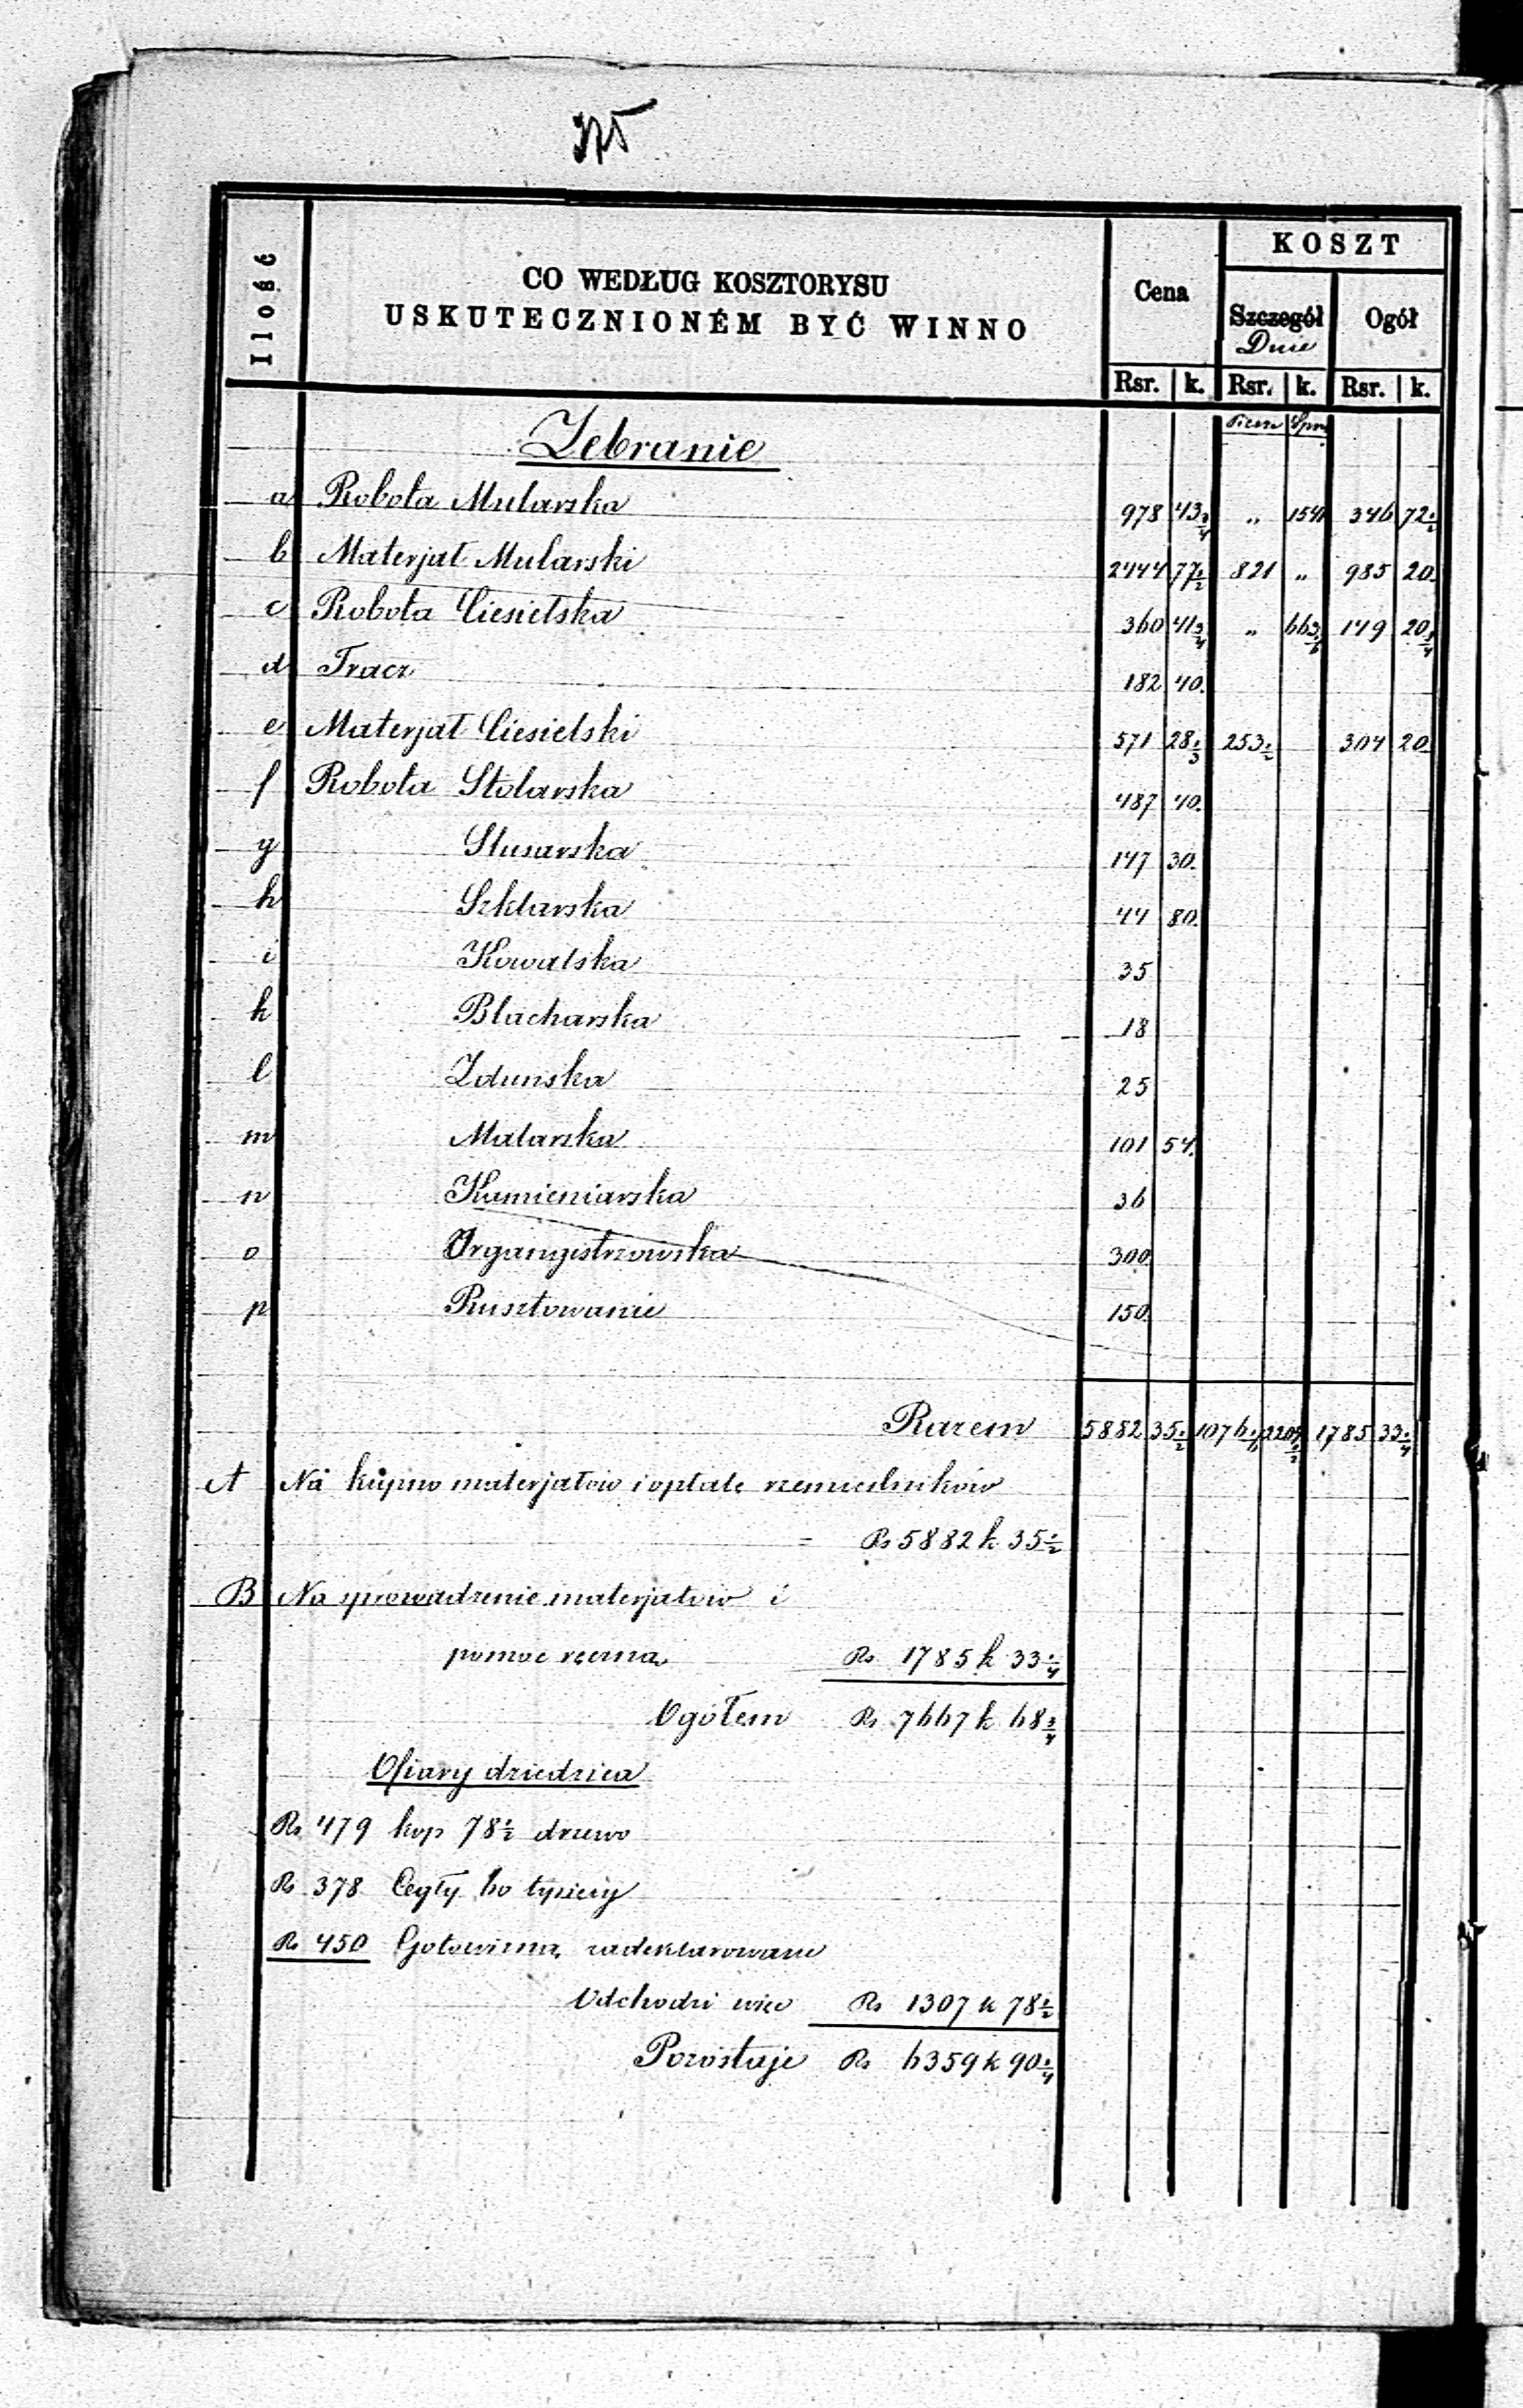 375
Ilość
CO WEDŁUG KOSZTORYSU
USKUTECZNIONÉM BYĆ WINNO
Cena
KOSZT
Szczegół
Dnie
Ogół
Rsr. k. Rsr. k. Rsr. k.
Piesze Sprz
Zebranie
a Robota Mularska 978 43 3/4 „ 1541 346 72 1/2
b Materjał Mularski 2444 77 1/2 821 „ 985 20.
c Robota Ciesielska 360 41 3/4 „ 663 149 20 3/4
d Tracz 182 40.
e Materjał Ciesielski 571 28 1/3 253 1/2 304 20
f Robota Stolarska 487 40.
g Slusarska 147 30.
h Szklarska 44 80.
i Kowalska 35
k Blacharska 18
l Zduńska 25
m Malarska 101 54.
n Kamieniarska 36
o Organmistrzowska 300
p Rusztowanie 150.
Razem 5882 35 1/2 1076 2209 1/2 1785 33 1/4
A Na kupno materjałów i opłate rzemieślników
= Rs 5882 k 35 1/2
B Na sprowadzenie materjałów i
pomoc ręczna Rs 1785 k 33 1/4
Ogółem Rs 7667 k 68 3/4
Ofiary dziedzica
Rs 479 kop 78 1/2 drzewo
Rs 378 Cegły 60 tysięcy
Rs 450 Gotowizna zadeklarowane
Odchodzi więc Rs 1307 k 78 1/2
Pozostaje Rs 6359 k 90 1/4